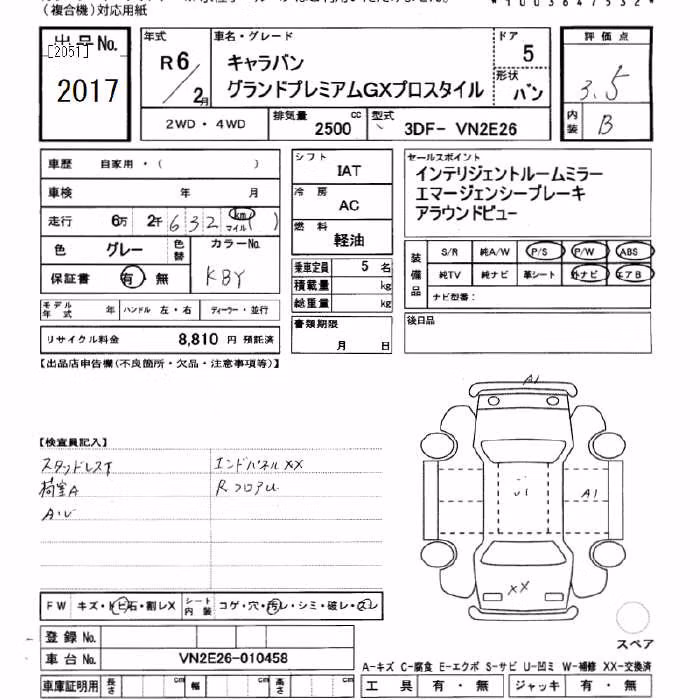 (複合機)対応用紙
*1003647532*
出品No.
[2051]
2017
年式
R6/2月
車名・グレード
キャラバン
グランドプレミアムGXプロスタイル
ドア
5
形状
バン
評価点
3.5
内装
B
2WD・4WD
排気量
2500
cc
型式
3DF- VN2E26
車歴 自家用・( )
車検 年 月
走行 6万 2千 632 km マイル ( )
色 グレー 色替 カラーNo.
保証書 有・無 KBY
モデル年式 年 ハンドル 左・右 ディーラー・並行
リサイクル料金 8,810 円 預託済
シフト
IAT
冷房
AC
燃料
軽油
乗車定員 5 名
積載量 kg
総重量 kg
書類期限
月 日
セールスポイント
インテリジェントルームミラー
エマージェンシーブレーキ
アラウンドビュー
装備品
S/R 純A/W P/S P/W ABS
純TV 純ナビ 革シート 外ナビ エアB
ナビ型番:
後日品
【出品店申告欄(不良箇所・欠品・注意事項等)】
【検査員記入】
スタッドレスT エンドパネルXX
荷室A RフロアU
A・U
A1
U1
A1
XX
FW キズ・トビ石・割レX シート内装 コゲ・穴・汚レ・シミ・破レ・スレ
登録No.
車台No. VN2E26-010458
車庫証明用 長さ cm 幅 cm 高さ cm
スペア
A-キズ C-腐食 E-エクボ S-サビ U-凹ミ W-補修 XX-交換済
工具 有・無 ジャッキ 有・無